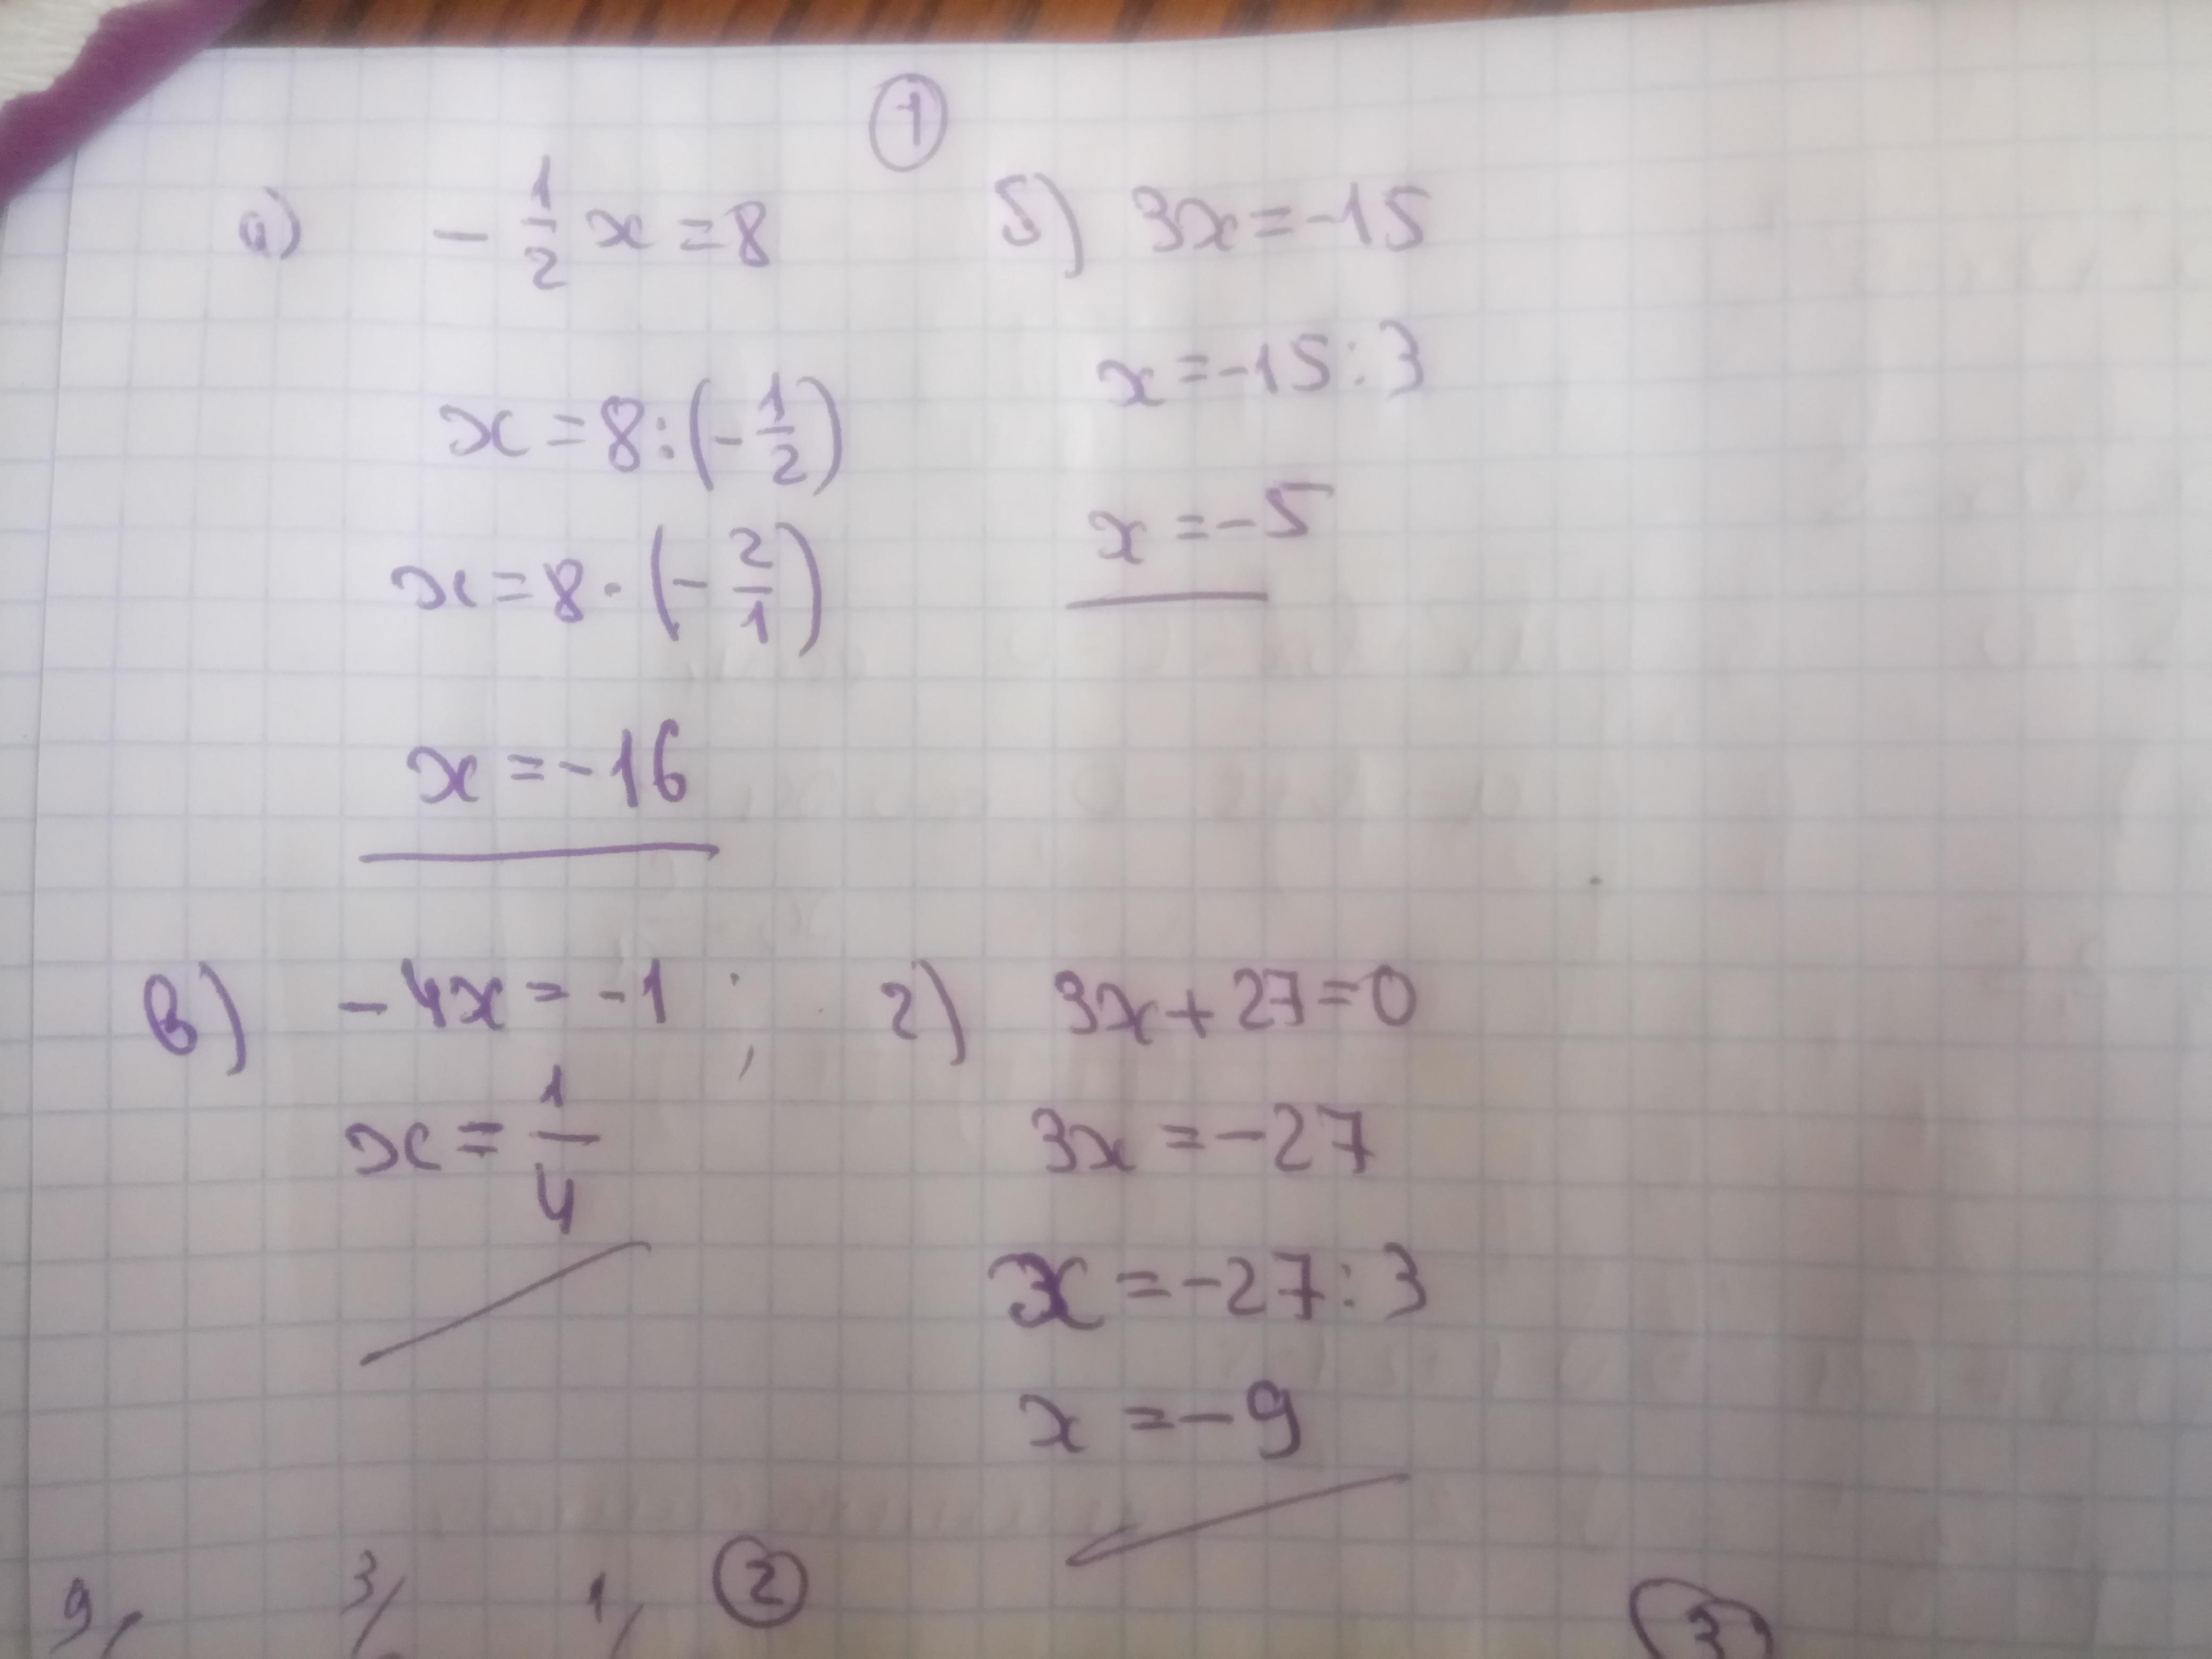 1
а) - 1/2 x = 8
x = 8 : (- 1/2)
x = 8 · (- 2/1)
x = - 16
б) 3x = -15
x = -15 : 3
x = - 5
в) - 4x = - 1 ;
x = 1/4
г) 3x + 27 = 0
3x = - 27
x = - 27 : 3
x = - 9
9/ 3/ 1/ 2
3